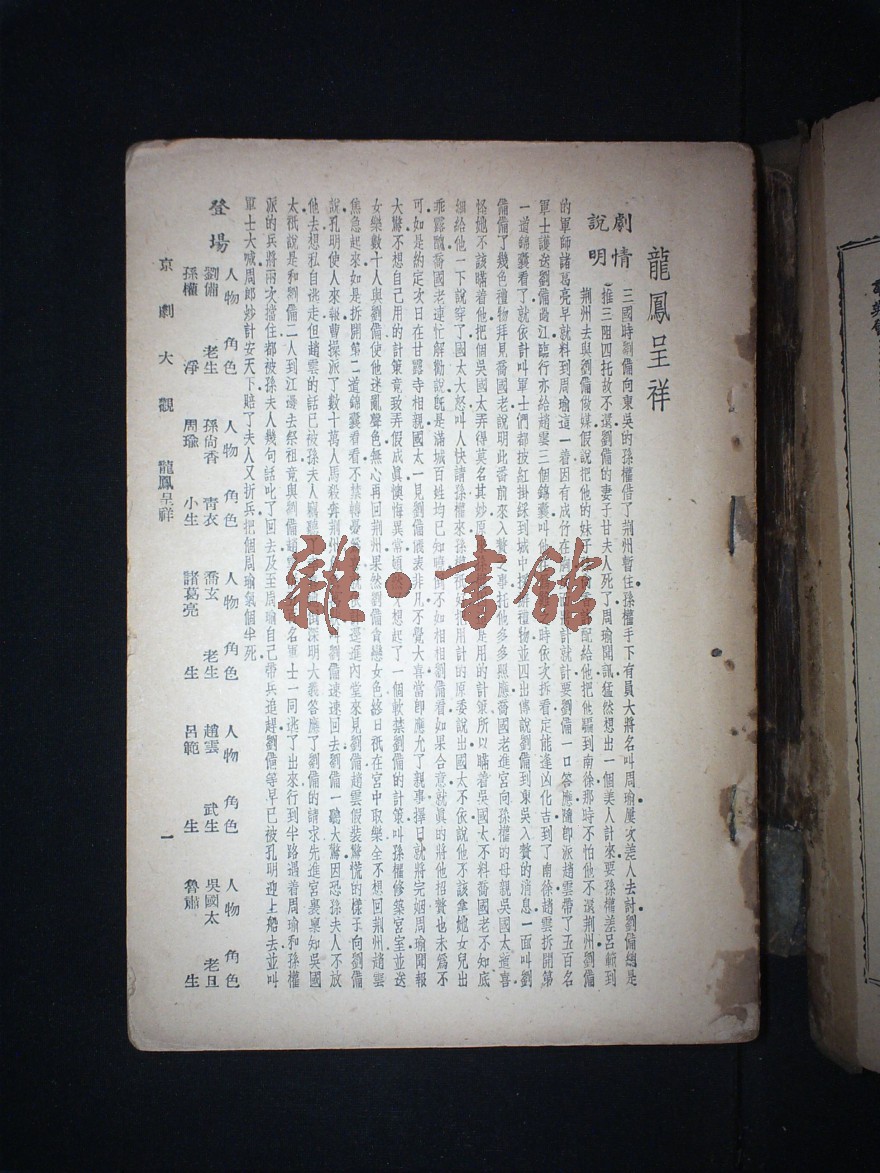 龍鳳呈祥
劇情
說明
三國時劉備向東吳的孫權借了荆州暫住孫權手下有員大將名叫周瑜屢次差人去討劉備總是
推三阻四托故不還劉備的妻子甘夫人死了周瑜聞訊猛然想出一個美人計來要孫權差呂範到
荆州去與劉備做媒假說把他的妹 配給他把他騙到南徐那時不怕他不還荆州劉備
的軍師諸葛亮早就料到周瑜這一着因有成竹在 計就計要劉備一口答應隨即派趙雲帶了五百名
軍士護送劉備過江臨行亦給趙雲三個錦囊叫他 時依次拆看定能逢凶化吉到了南徐趙雲拆開第
一道錦囊看了就依計叫軍士們都披紅掛綵到城中 禮物並四出傳說劉備到東吳入贅的消息一面叫劉
備備了幾色禮物拜見喬國老說明此番前來入贅 事托他多多照應喬國老進宮向孫權的母親吳國太道喜
怪她不該瞞着他把個吳國太弄得莫名其妙原 是用的計策所以瞞着吳國太不料喬國老不知底
細給他一下說穿了國太大怒叫人快請孫權來孫 用計的原委說出國太不依說他不該拿她女兒出
乖露醜喬國老連忙解勸說既是滿城百姓均已知曉 不如相相劉備看如果合意就眞的將他招贅也未爲不
可如是約定次日在甘露寺相親國太一見劉備儀表非凡不覺大喜當卽應允了親事擇日就將完姻周瑜聞報
大驚不想自己用的計策竟致弄假成眞懊悔異常 想起了一個軟禁劉備的計策叫孫權修築宮室並送
女樂數十人與劉備使他迷亂聲色無心再回荆州果然劉備貪戀女色終日祇在宮中取樂全不想回荆州趙雲
焦急起來如是拆開第二道錦囊看看不禁 進內堂來見劉備趙雲假裝驚慌的樣子向劉備
說孔明使人來報曹操派了數十萬人馬殺奔荆州 劉備速速回去劉備一聽大驚因恐孫夫人不放
他去想私自逃走但趙雲的話已被孫夫人竊聽 深明大義答應了劉備的請求先進宮裹稟知吳國
太祇說是和劉備二人到江邊去祭祖竟與劉備趙 名軍士一同逃了出來行到半路遇着周瑜和孫權
派的兵將兩次擋住都被孫夫人幾句話叱了回去及至周瑜自己帶兵追趕劉備等早已被孔明迎上船去並叫
軍士大喊周郎妙計安天下賠了夫人又折兵把個周瑜氣個半死
登場
人物 角色 人物 角色 人物 角色 人物 角色 人物 角色
劉備 老生 孫尙香 青衣 喬玄 老生 趙雲 武生 吳國太 老旦
孫權 淨 周瑜 小生 諸葛亮 生 呂範 生 魯肅 生
京劇大觀 龍鳳呈祥 一
雜·書館